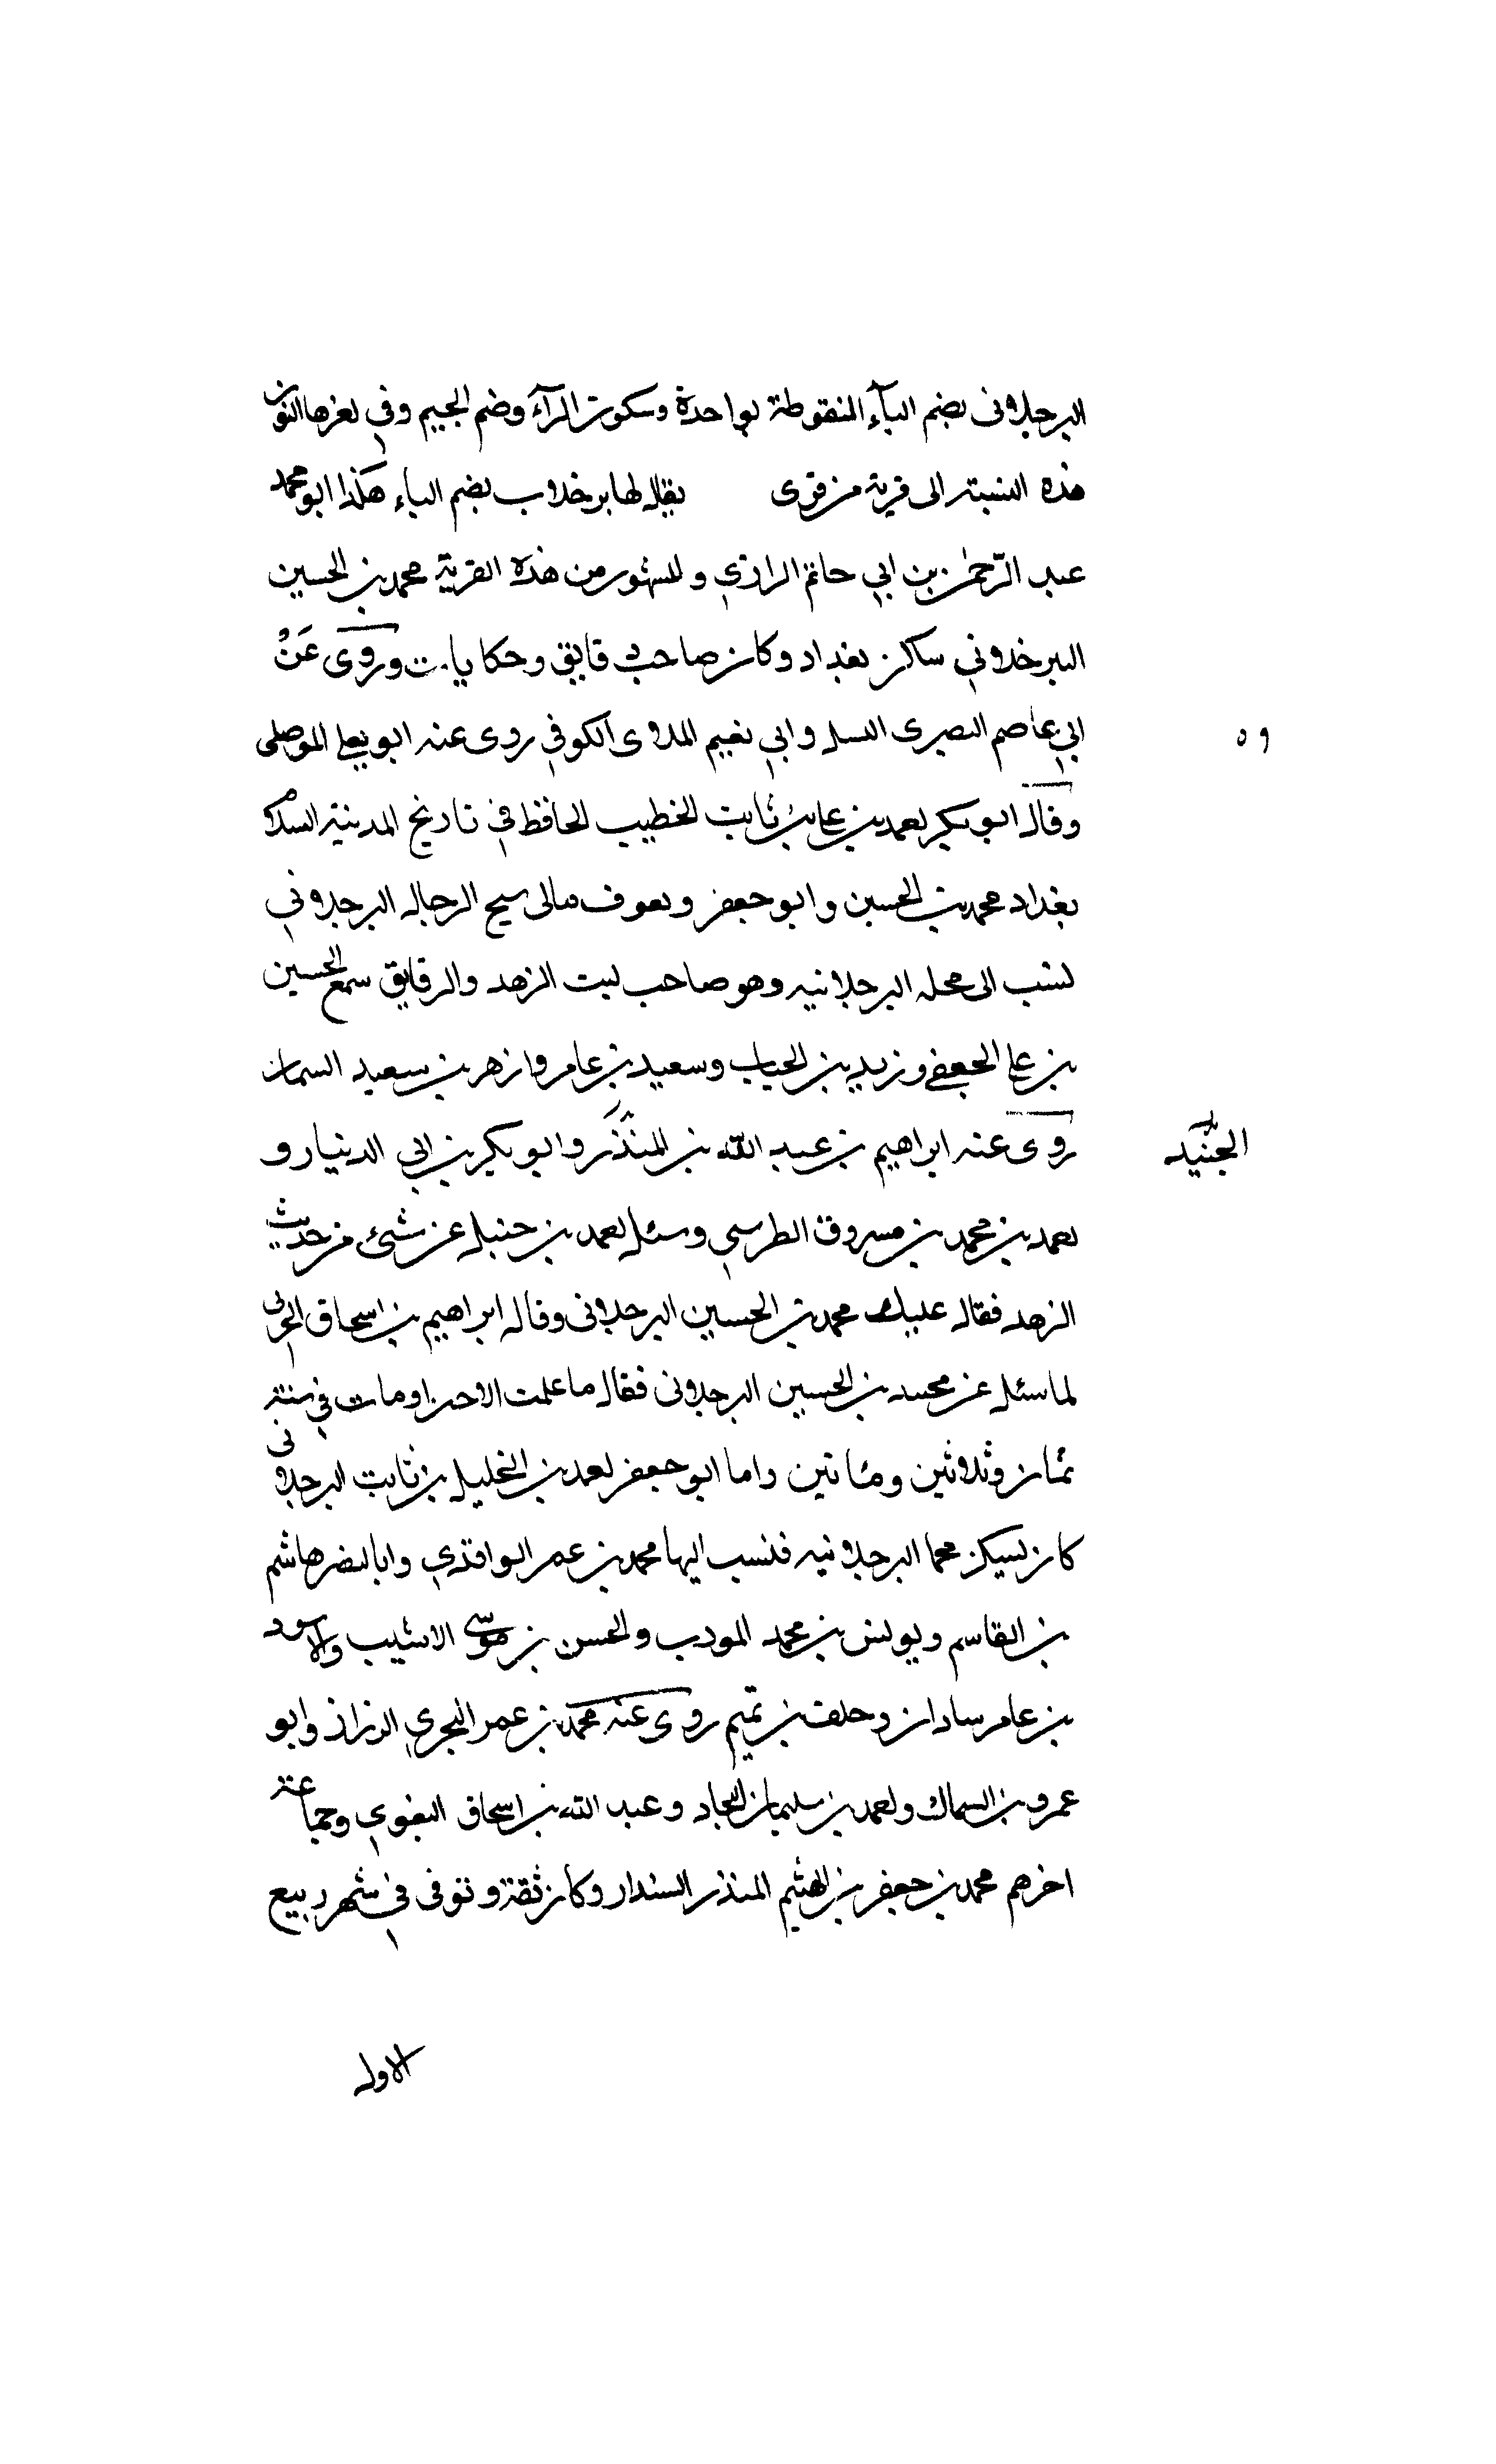 البرجلاني بضم الباء المنقوطة بواحدة وسكون الراء وضم الجيم وفي اخرها النون
هذه النسبة الى قرية من قرى يقال لها برخلان بضم الباء هكذا ابو محمد
عبد الرحمن بن ابي حاتم الرازي والمشهور من هذه القرية محمد بن الحسين
البرخلاني ساكن بغداد وكان صاحب رقايق وحكايات وروى عن
ابي عاصم البصري وابي نعيم الملاوى الكوفي روى عنه ابو يعلى الموصلي
وقال ابو بكر احمد بن علي بن ثابت الخطيب الحافظ في تاريخ المدينة السلام
بغداد محمد بن الحسين وابو جعفر ويعرف الرجال البرجلاني
نسب الى محله البرجلانيه وهو صاحب لبت الزهد والرقايق سمع الحسين
بن علي الجعفي وزيد بن الحباب وسعيد بن عامر وازهر بن سعيد السمان
روى عنه ابراهيم بن عبد الله بن المنذر وابو بكر بن ابي الدنيا رو
الجنيد
احمد بن محمد بن مسروق الطرسي وسئل احمد بن حنبل عن شئ من حديث
الزهد فقال عليك محمد بن الحسين البرجلاني وقال ابراهيم بن اسحاق الحربي
لما سئل عن محمد بن الحسين البرجلاني فقال ما علمت الا خيرا ومات في سنة
ثمان وثلاثين ومئاتين واما ابو جعفر احمد بن الخليل بن ثابت البرجلاني
كان يسكن محما البرجلانيه فنسب اليها محمد بن عمر الواقدي وابا النضر هاشم
بن القاسم ويونس بن محمد المودب والحسن بن موسى الاشيب والاسود
بن عامر سادان وخلف بن تميم روى عنه محمد بن عمر البحري الرزاز وابو
عمرو بن السماك واحمد بن سليمان النجاد وعبد الله بن اسحاق البغوي وجماعة
اخرهم محمد بن جعفر بن الهثيم المنذر السندار وكان ثقة وتوفى في شهر ربيع
الاول